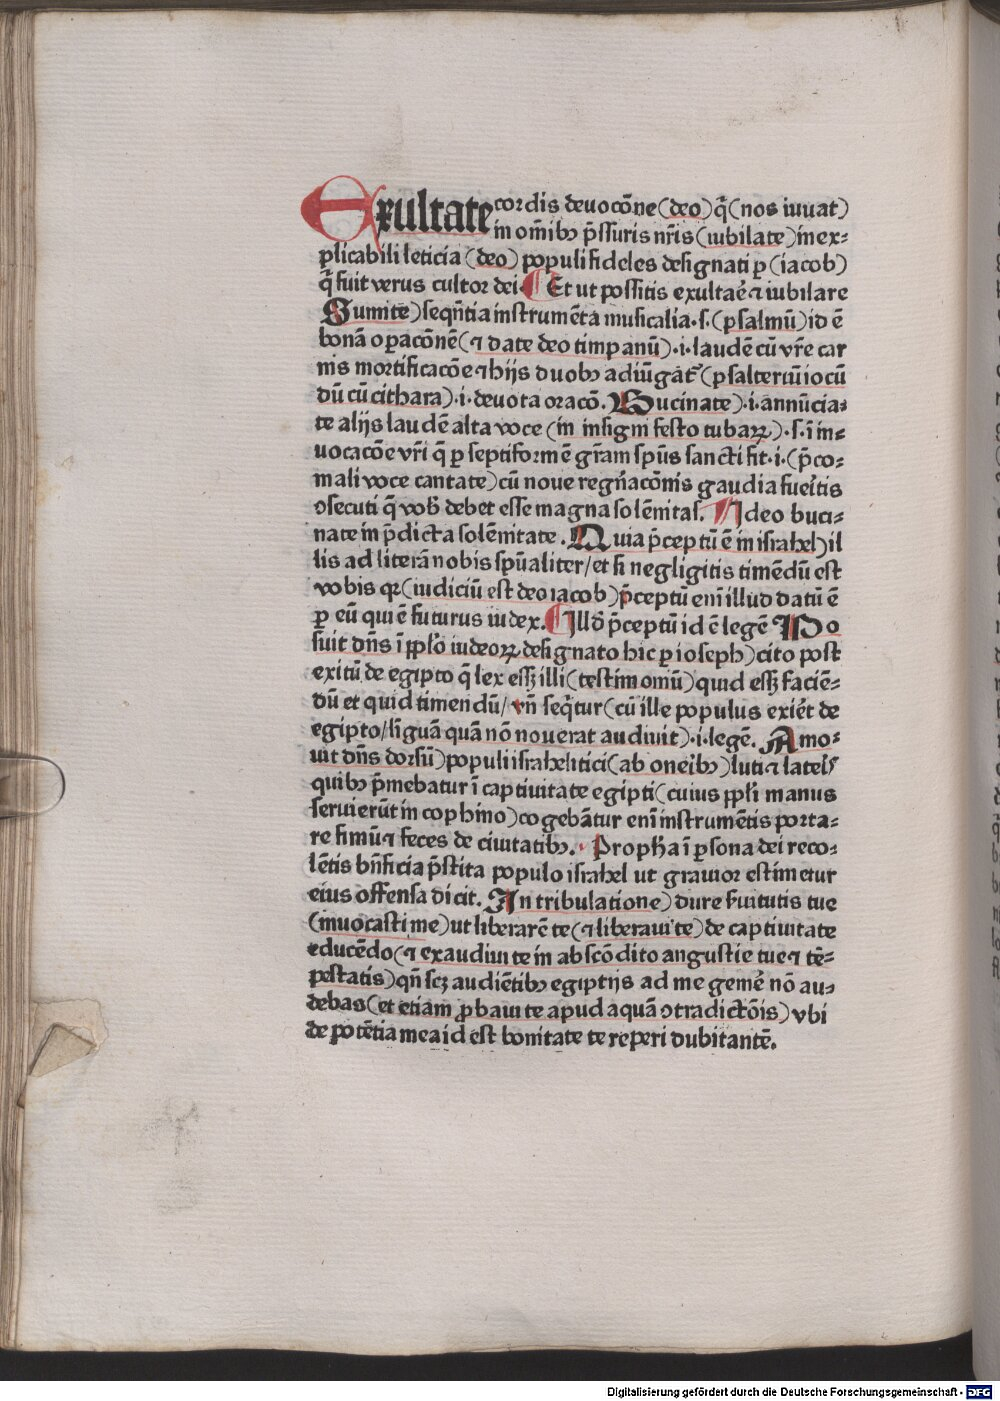 Exultate cordis deuocōne (deo) q̄ (nos iuuat)
in om̄ibꝫ p̄ssuris nr̄is (iubilate) inex⸗
plicabili leticia (deo) populi fideles designati ꝑ (iacob)
q̄ fuit verus cultor dei. Et ut possitis exultaꝛ̄ ⁊ iubilare
Sumite) seqn̄tia instrumēta musicalia·s·(psalmū) id ē
bonā oꝑacōnē (⁊ date deo timpanū)·i·laudē cū vr̄e car
nis mortificacōe ⁊ hijs duobꝫ adiūgāt᷑ (psalteriū iocū
dū cū cithara)·i·deuota oracō. Bucinate)·i·annūcia⸗
te alijs laudē alta voce (in insigni festo tubaꝝ)·s·ī in⸗
uocacōe vr̄i q̄ ꝑ septiformē gr̄am spūs sancti fit·i·(p̄co⸗
mali voce cantate) cū noue regn̄acōnis gaudia fueītis
ꝯsecuti q̄ vob̄ debet esse magna solēnitas. Ideo buci⸗
nate in p̄dicta solēnitate. Quia p̄ceptū ē in israhel) il
lis ad literā nobis spūaliter/et si negligitis timēdū est
vobis qꝛ (iudiciū est deo iacob) p̄ceptū enī illud datū ē
ꝑ eū qui ē futurus iudex. Illd̄ p̄ceptū id ē legē Po
suit dn̄s ī pp̄lo iudeoꝝ designato hic ꝑ ioseph) cito post
exitū de egipto q̄ lex essꝫ illi (testimoniū) quid essꝫ faciē⸗
dū et quid timendū/vn̄ seq̄tur (cū ille populus exiēt de
egipto/līguā quā nō nouerat audiuit)·i·legē. Amo⸗
uit dn̄s dorsū) populi israhelitici (ab oneibꝫ) luti ⁊ lateꝝ
quibꝫ p̄mebatur ī captiuitate egipti (cuius pp̄li manus
seruierūt in cophino) cogebātur enī instrumētis porta⸗
re fimū ⁊ feces de ciuitatibꝫ. Proph̄a ī ꝑsona dei reco⸗
lētis bn̄ficia p̄stita populo israhel ut grauior estimetur
eius offensa dicit. In tribulatione) dure s̄uitutis tue
(inuocasti me) ut liberarē te (⁊ liberaui te) de captiuitate
educēdo (⁊ exaudiui te in abscōdito angustie tue ⁊ tē⸗
pestatis) qn̄ scꝫ audiētibꝫ egiptijs ad me gemēꝛ nō au⸗
debas (et etiam ꝓbaui te apud aquā ꝯtradictōis) vbi
de potētia mea id est bonitate te reperi dubitantē.
Digitalisierung gefördert durch die Deutsche Forschungsgemeinschaft - DFG